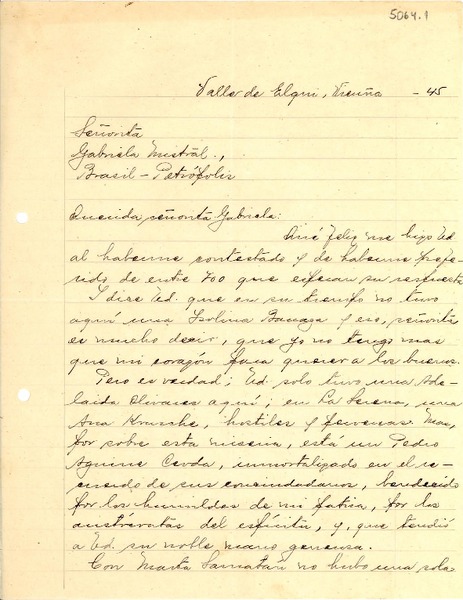 5064.1
Valle de Elqui, Vicuña - 45
Señorita
Gabriela Mistral.,
Brasil - Petrópolis
Querida señorita Gabriela:
Qué feliz me hizo Ud
al haberme contestado y de haberme prefe-
rido de entre 700 que esperan su respuesta
I dice Ud. que en su tiempo no tuvo
aquí una Isolina Barraza y eso, señorita
es mucho decir, que yo no tengo mas
que mi corazón para querer a los buenos.
Pero es verdad; Ud. solo tuvo una Ade-
laida Olivares aquí; en La Serena, una
Ana Krusche, hostiles y perversas. Mas,
por sobre esta miseria, está un Pedro
Aguirre Cerda, inmortalizado en el re-
cuerdo de sus conciudadanos, bendecido
por los humildes de mi patria, por los
aristócratas del espíritu, y, que tendió
a Ud. su noble mano generosa.
Con Marta Samatán no hubo una sola